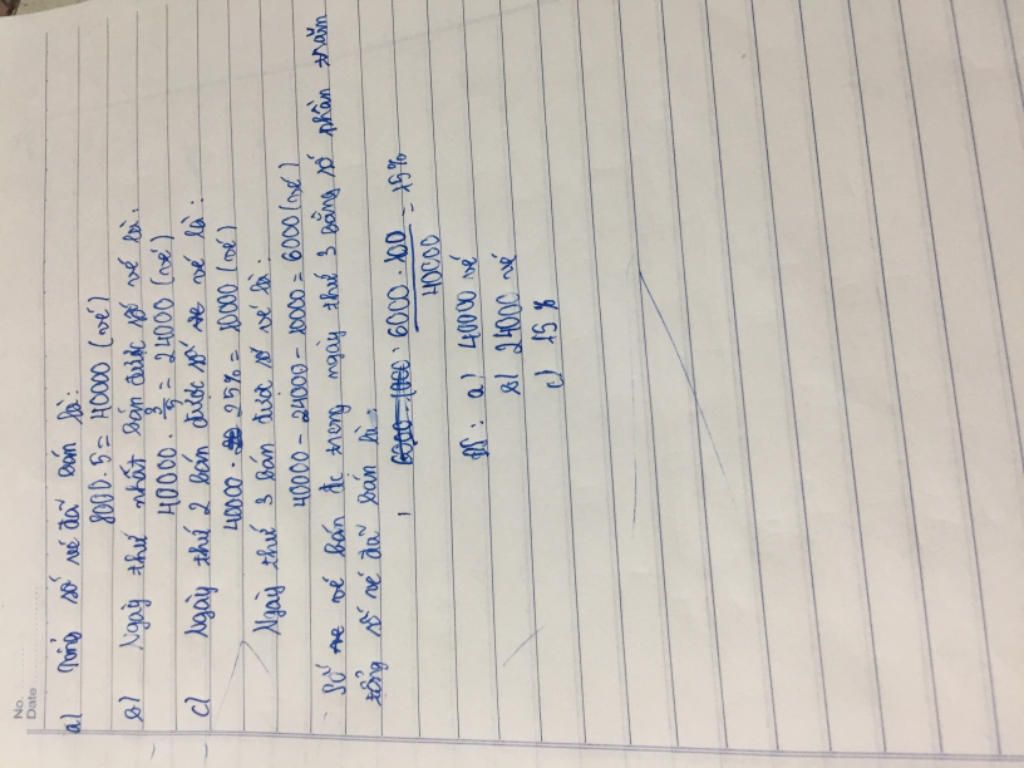 No.
Date
a) Tổng số vé đã bán là:
8000 . 5 = 40000 (vé)
b) Ngày thứ nhất bán được số vé là:
40000 . 3/5 = 24000 (vé)
c) Ngày thứ 2 bán được số vé là:
40000 . 25% = 10000 (vé)
Ngày thứ 3 ban được số vé là:
40000 - 24000 - 10000 = 6000 (vé)
Số vé bán đc trong ngày thứ 3 bằng số phần trăm
tổng số vé đã bán là:
6000 . 100 / 40000 = 15%
ĐS: a) 40000 vé
b) 24000 vé
c) 15 %